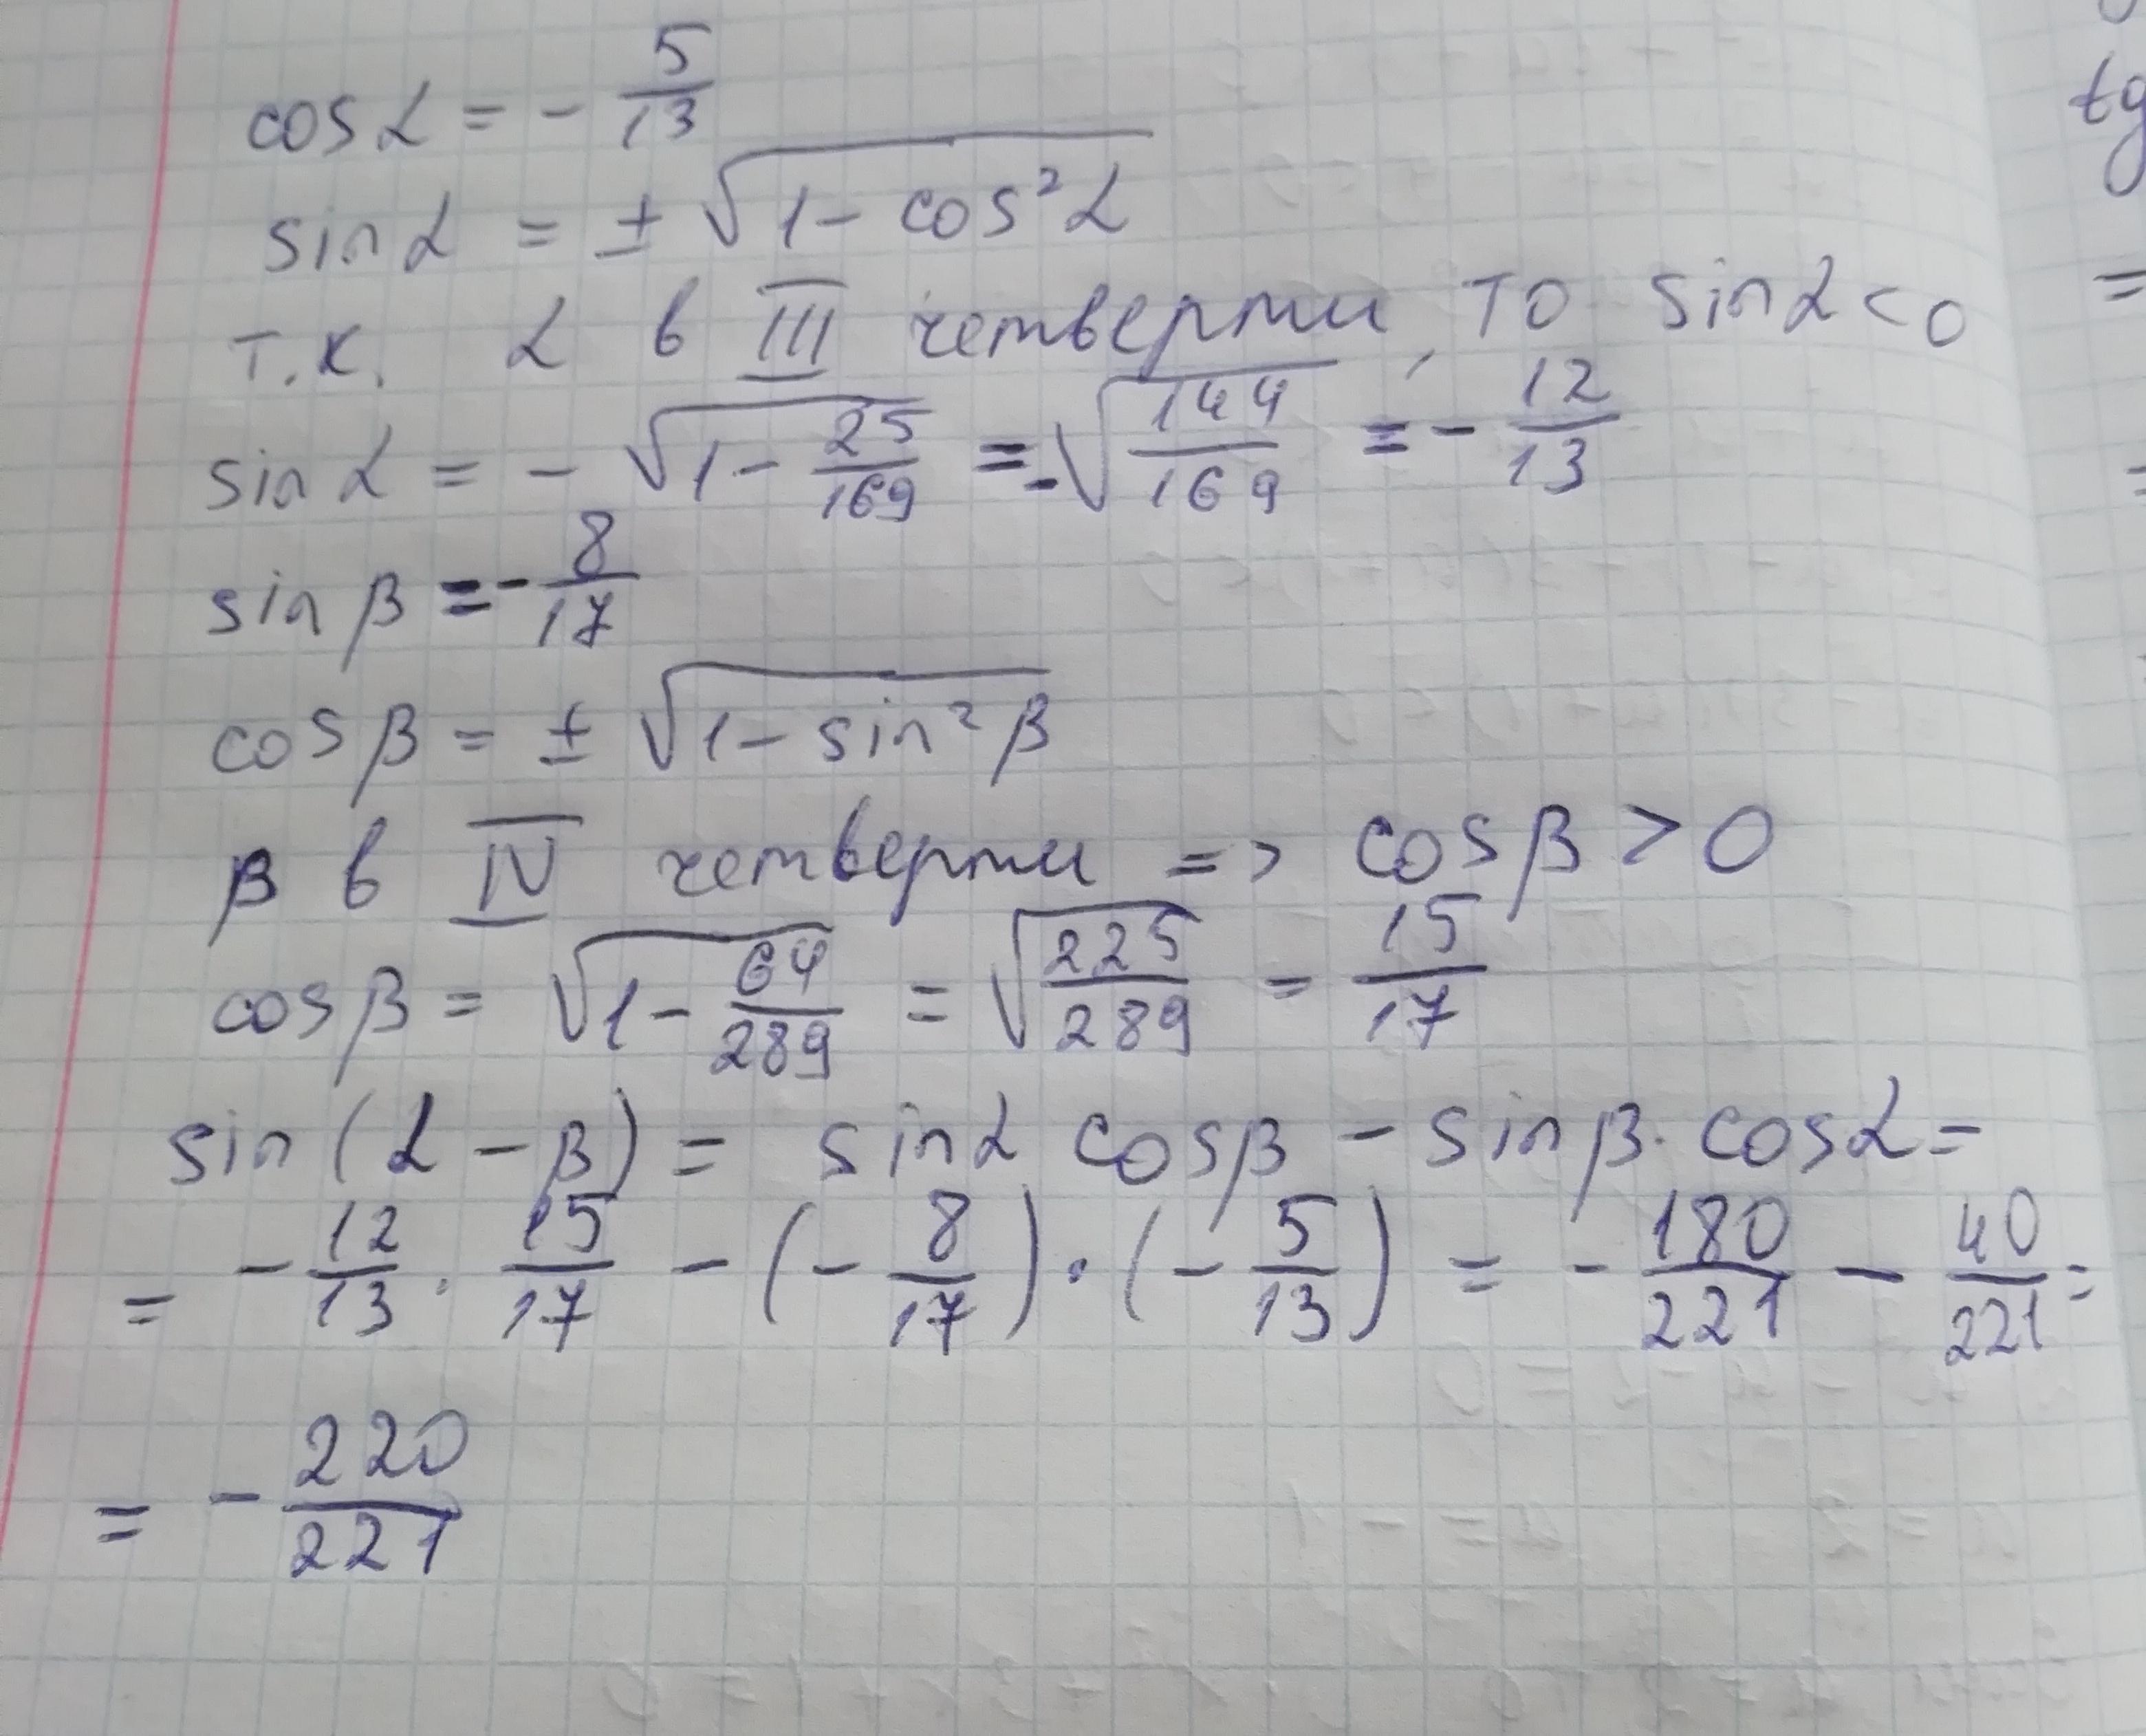 cos α = - 5/13
sin α = ± √(1 - cos² α)
т.к. α в III четверти, то sin α < 0
sin α = - √(1 - 25/169) = - √(144/169) = - 12/13
sin β = - 8/17
cos β = ± √(1 - sin² β)
β в IV четверти => cos β > 0
cos β = √(1 - 64/289) = √(225/289) = 15/17
sin (α - β) = sin α cos β - sin β · cos α =
= - 12/13 · 15/17 - (- 8/17) · (- 5/13) = - 180/221 - 40/221 =
= - 220/221
tg
=